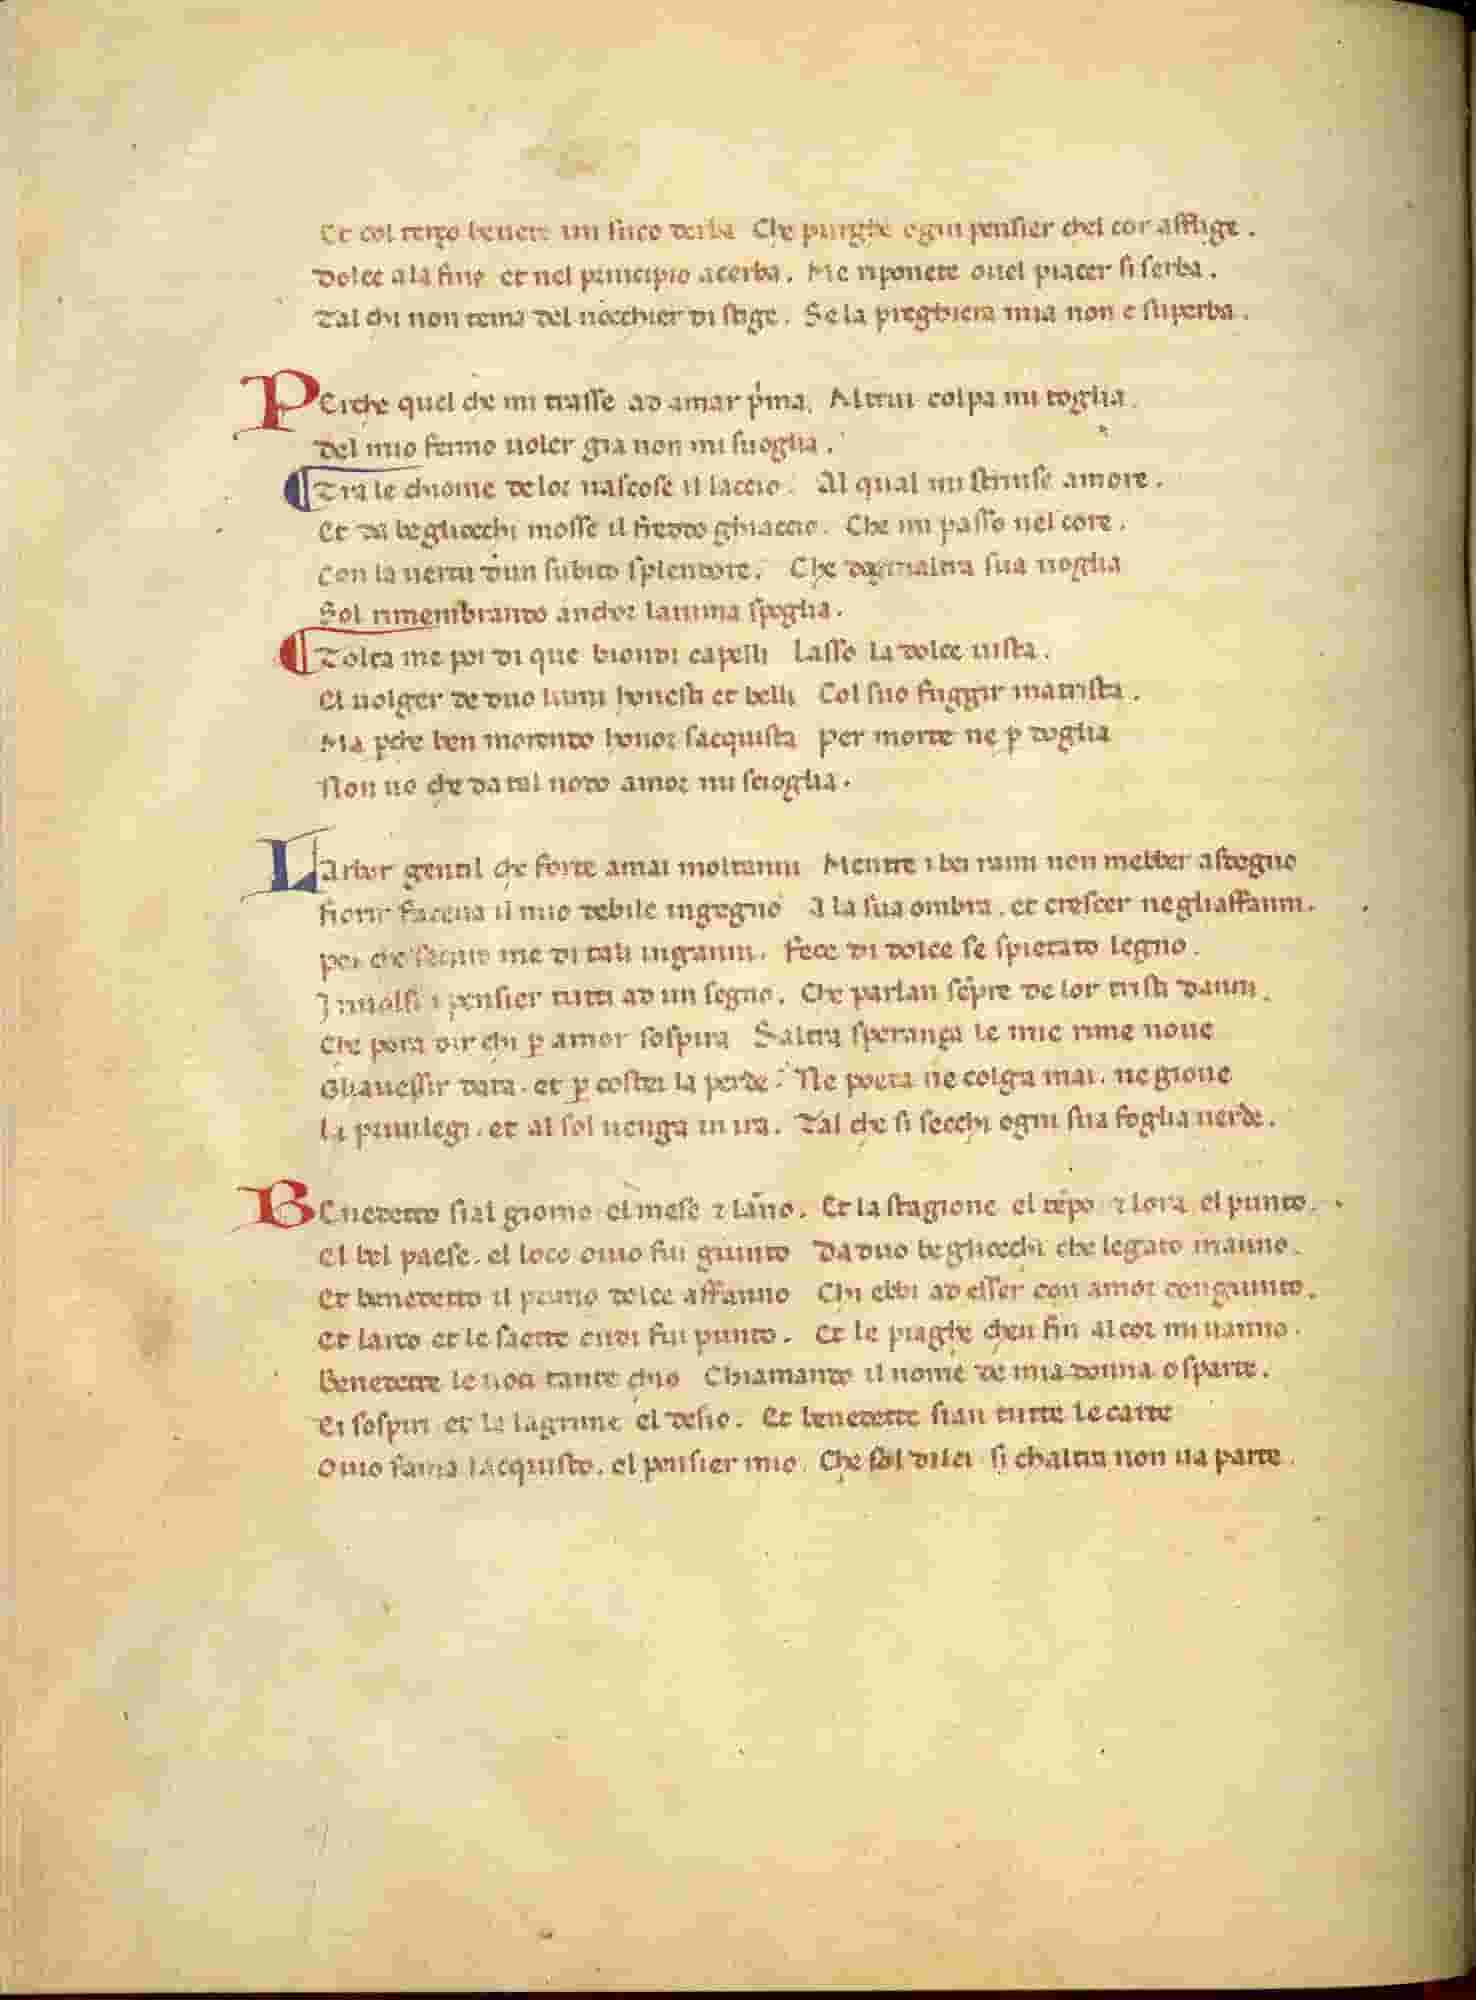 Et col terço beuete un suco derba Che purghe ogni pensier chel cor afflige.
Dolce ala fine et nel principio acerba. Me riponete ouel piacer si serba.
Tal chi non tema del nocchier di stige. Se la preghiera mia non e superba.
PErche quel che mi trasse ad amar p'ma. Altrui colpa mi toglia.
Del mio fermo uoler gia non mi suoglia.
Tra le chiome de lor nascose il laccio. Al qual mi strinse amore.
Et da begliocchi mosse il freddo ghiaccio. Che mi passo nel core.
Con la uertu dun subito splendore. Che dognialtra sua uoglia
Sol rimembrando anchor lanima spoglia.
Tolta me poi di que biondi capelli Lasso la dolce uista.
El uolger de duo lumi honesti et belli Col suo fuggir matrista.
Ma pche ben morendo honor sacquista per morte ne p doglia
Non uo che da tal nodo amor mi scioglia.
LArbor gentil che forte amai moltanni Mentre i bei rami non mebber asdegno
fiorir faceua il mio debile ingegno A la sua ombra. et crescer negliaffanni.
poi che securo me di tali inganni. fece di dolce se spietato legno.
J riuolsi i pensier tutti ad un segno. Che parlan sẽpre de lor tristi danni.
Che pora dir chi p amor sospira Saltra sperança le mie rime noue
Gliauessir data. et p costei la perde. Ne poeta ne colga mai. ne gioue
la priuilegi. et al sol uenga in ira. Tal che si secchi ogni sua foglia uerde.
BEnedetto sial giorno el mese ⁊ lãno. Et la stagione el tẽpo ⁊ lora el punto.
El bel paese. el loco ouio fui giunto Da duo begliocchi che legato manno.
Et benedetto il primo dolce affanno Chi ebbi ad esser con amor congiunto.
Et larco et le saette ondi fui punto. Et le piaghe chen fin al cor mi uanno.
Benedette le uoci tante chio Chiamando il nome de mia donna o sparte.
Ei sospiri et le lagrime el desio. Et benedette sian tutte le carte
Ouio fama lacquisto. el pensier mio. Che sol dilei si chaltra non ua parte.